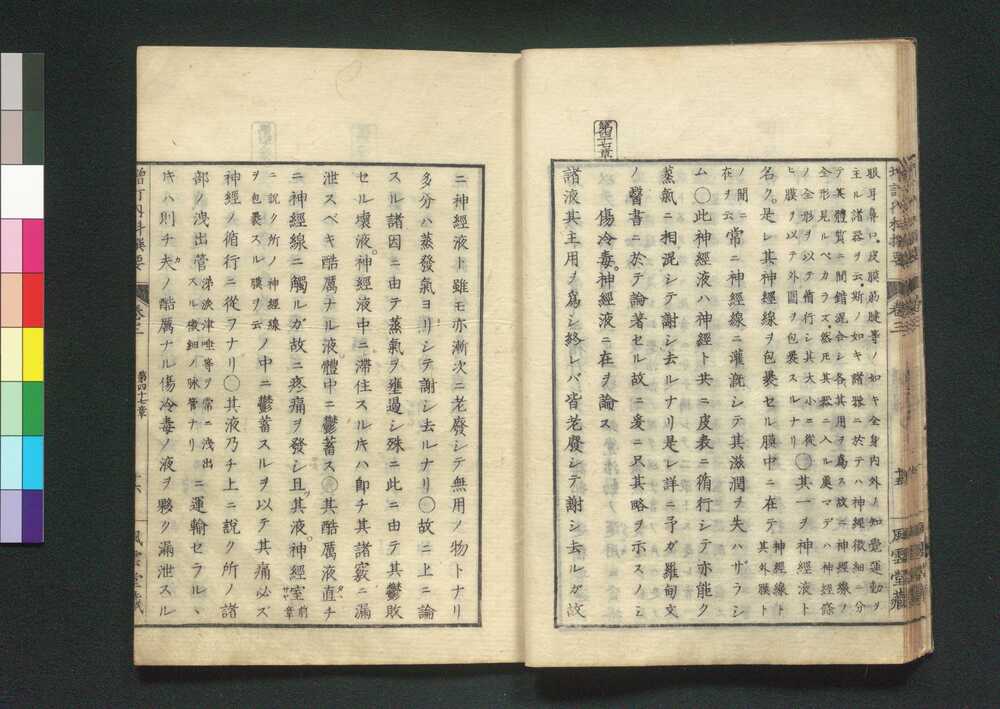 眼耳鼻口、皮膜筋腱等ノ如キ全身内外ノ知覺運動ヲ
主ル諸器ヲ云、斯ノ如キ諸器ニ於テハ神經微細ニ分
テ其體質ニ間錯混合シ各其用ヲ爲ス故ニ神經線ノ
全形見ルベカラズ、然𪜈其器ニ入ル裏マデハ神經條
ノ全形ヲ以テ脩行シ其大小ニ從
ヒ膜ヲ以テ外圍ヲ包裹スルナリ
〇其一ヲ神經液ト
名ク。是レ其神經線ヲ包裹セル膜中ニ在テ 神經線ト其外膜ト
ノ間ニ在ヲ云 常ニ神經線ニ灌漑シテ其滋潤ヲ失ハザラシ
ム〇此神經液ハ神經ト共ニ皮表ニ脩行シテ亦能ク
蒸氣ニ相混シテ謝シ去ルナリ是レ詳ニ予ガ羅甸文
ノ醫書ニ於テ論著セル故ニ爰ニ只其略ヲ示スノミ
第四十七章
傷冷毒。神經液ニ在ヲ論ス
諸液其主用ヲ爲シ終レバ皆老廢シテ謝シ去ルガ故
ニ神經液ト雖モ亦漸次ニ老廢シテ無用ノ物トナリ
多分ハ蒸發氣ヨリシテ謝シ去ルナリ〇故ニ上ニ論
スル諸因ニ由テ蒸氣ヲ壅遏シ殊ニ此ニ由テ其鬱敗
セル壞液。神經液中ニ滯住スル𪜈ハ卽チ其諸竅ニ漏
泄スベキ酷厲ナル液體中ニ鬱蓄ス〇其酷厲液直チ
ニ神經線ニ觸ルガ故ニ疼痛ヲ發シ且其液。神經室 前章
ニ説ク所ノ神經線
ヲ包裹スル膜ヲ云
ノ中ニ鬱蓄スルヲ以テ其痛必ズ
神經ノ脩行ニ從フナリ〇其液乃チ上ニ説ク所ノ諸
部ノ洩出管 涕涙津唾等ヲ常ニ洩出
スル微細ノ脉管ナリ
ニ運輸セラルヽ
𪜈ハ則チ夫ノ酷厲ナル傷冷毒ノ液ヲ夥ク漏泄スル
第四十七章
十六
風雲堂藏